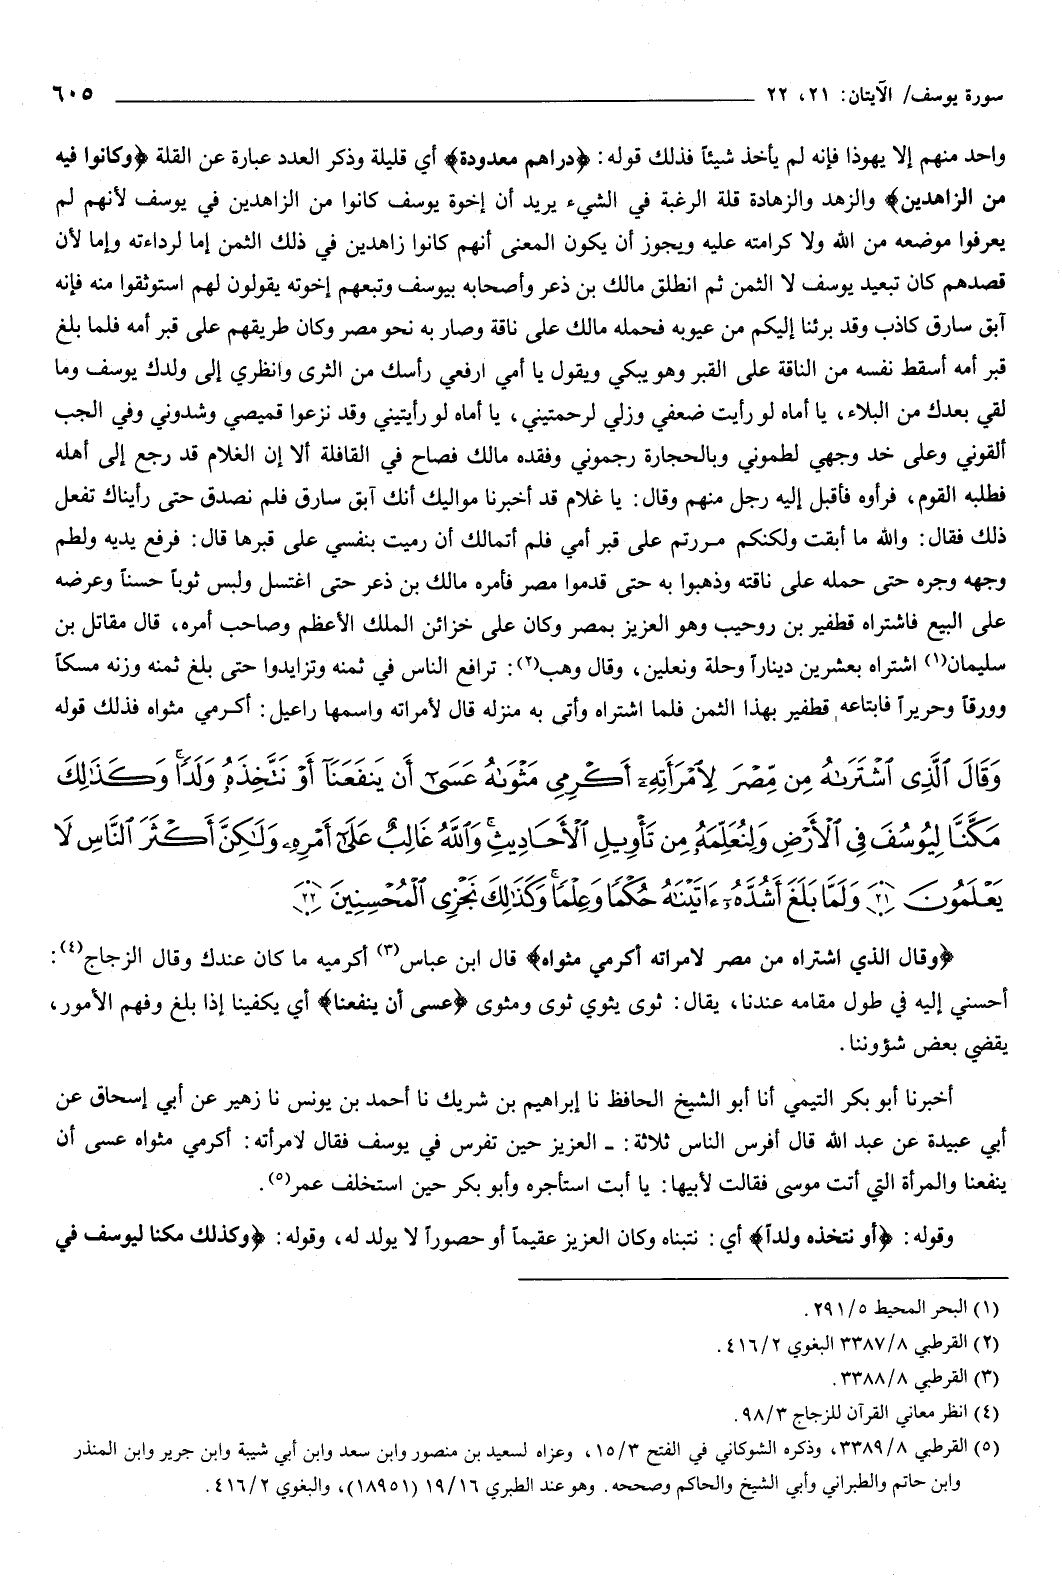 سورة يوسف/ الآيتان: ٢١، ٢٢ ٦٠٥
واحد منهم إلا يهوذا فإنه لم يأخذ شيئاً فذلك قوله: ﴿دراهم معدودة﴾ أي قليلة وذكر العدد عبارة عن القلة ﴿وكانوا فيه
من الزاهدين﴾ والزهد والزهادة قلة الرغبة في الشيء يريد أن إخوة يوسف كانوا من الزاهدين في يوسف لأنهم لم
يعرفوا موضعه من الله ولا كرامته عليه ويجوز أن يكون المعنى أنهم كانوا زاهدين في ذلك الثمن إما لرداءته وإما لأن
قصدهم كان تبعيد يوسف لا الثمن ثم انطلق مالك بن ذعر وأصحابه بيوسف وتبعهم إخوته يقولون لهم استوثقوا منه فإنه
آبق سارق كاذب وقد برئنا إليكم من عيوبه فحمله مالك على ناقة وصار به نحو مصر وكان طريقهم على قبر أمه فلما بلغ
قبر أمه أسقط نفسه من الناقة على القبر وهو يبكي ويقول يا أمي ارفعي رأسك من الثرى وانظري إلى ولدك يوسف وما
لقي بعدك من البلاء، يا أماه لو رأيت ضعفي وزلي لرحمتيني، يا أماه لو رأيتيني وقد نزعوا قميصي وشدوني وفي الجب
ألقوني وعلى خد وجهي لطموني وبالحجارة رجموني وفقده مالك فصاح في القافلة ألا إن الغلام قد رجع إلى أهله
فطلبه القوم، فرأوه فأقبل إليه رجل منهم وقال: يا غلام قد أخبرنا مواليك أنك آبق سارق فلم نصدق حتى رأيناك تفعل
ذلك فقال: والله ما أبقت ولكنكم مررتم على قبر أمي فلم أتمالك أن رميت بنفسي على قبرها قال: فرفع يديه ولطم
وجهه وجره حتى حمله على ناقته وذهبوا به حتى قدموا مصر فأمره مالك بن ذعر حتى اغتسل ولبس ثوباً حسناً وعرضه
على البيع فاشتراه قطفير بن روحيب وهو العزيز بمصر وكان على خزائن الملك الأعظم وصاحب أمره، قال مقاتل بن
سليمان(١) اشتراه بعشرين ديناراً وحلة ونعلين، وقال وهب(٢): ترافع الناس في ثمنه وتزايدوا حتى بلغ ثمنه وزنه مسكاً
وورقاً وحريراً فابتاعه قطفير بهذا الثمن فلما اشتراه وأتى به منزله قال لأمراته واسمها راعيل: أكرمي مثواه فذلك قوله
وَقَالَ ٱلَّذِى ٱشْتَرَىٰهُ مِن مِّصْرَ لِٱمْرَأَتِهِۦٓ أَكْرِمِى مَثْوَىٰهُ عَسَىٰٓ أَن يَنفَعَنَآ أَوْ نَتَّخِذَهُۥ وَلَدًا ۚ وَكَذَٰلِكَ
مَكَّنَّا لِيُوسُفَ فِى ٱلْأَرْضِ وَلِنُعَلِّمَهُۥ مِن تَأْوِيلِ ٱلْأَحَادِيثِ ۚ وَٱللَّهُ غَالِبٌ عَلَىٰٓ أَمْرِهِۦ وَلَٰكِنَّ أَكْثَرَ ٱلنَّاسِ لَا
يَعْلَمُونَ ٢١ وَلَمَّا بَلَغَ أَشُدَّهُۥٓ ءَاتَيْنَٰهُ حُكْمًا وَعِلْمًا ۚ وَكَذَٰلِكَ نَجْزِى ٱلْمُحْسِنِينَ ٢٢
﴿وقال الذي اشتراه من مصر لامراته أكرمي مثواه﴾ قال ابن عباس(٣) أكرميه ما كان عندك وقال الزجاج(٤):
أحسني إليه في طول مقامه عندنا، يقال: ثوى يثوي ثوى ومثوى ﴿عسى أن ينفعنا﴾ أي يكفينا إذا بلغ وفهم الأمور،
يقضي بعض شؤوننا.
أخبرنا أبو بكر التيمي أنا أبو الشيخ الحافظ نا إبراهيم بن شريك نا أحمد بن يونس نا زهير عن أبي إسحاق عن
أبي عبيدة عن عبد الله قال أفرس الناس ثلاثة: ـ العزيز حين تفرس في يوسف فقال لامرأته: أكرمي مثواه عسى أن
ينفعنا والمرأة التي أتت موسى فقالت لأبيها: يا أبت استأجره وأبو بكر حين استخلف عمر(٥).
وقوله: ﴿أو نتخذه ولداً﴾ أي: نتبناه وكان العزيز عقيماً أو حصوراً لا يولد له، وقوله: ﴿وكذلك مكنا ليوسف في
(١) البحر المحيط ٢٩١/٥.
(٢) القرطبي ٣٣٨٧/٨ البغوي ٤١٦/٢.
(٣) القرطبي ٣٣٨٨/٨.
(٤) انظر معاني القرآن للزجاج ٩٨/٣.
(٥) القرطبي ٣٣٨٩/٨، وذكره الشوكاني في الفتح ١٥/٣، وعزاه لسعيد بن منصور وابن سعد وابن أبي شيبة وابن جرير وابن المنذر
وابن حاتم والطبراني وأبي الشيخ والحاكم وصححه. وهو عند الطبري ١٩/١٦ (١٨٩٥١)، والبغوي ٤١٦/٢.